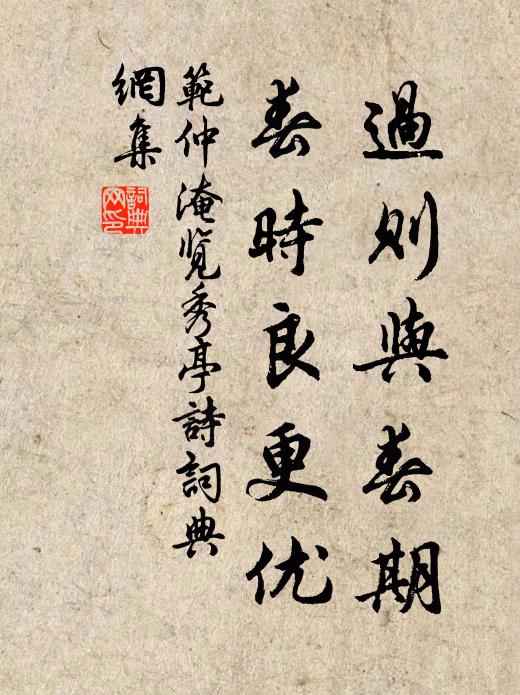 過則與春期
春時良更优
範仲淹覽秀亭詩詞典
網集
詞典
网印